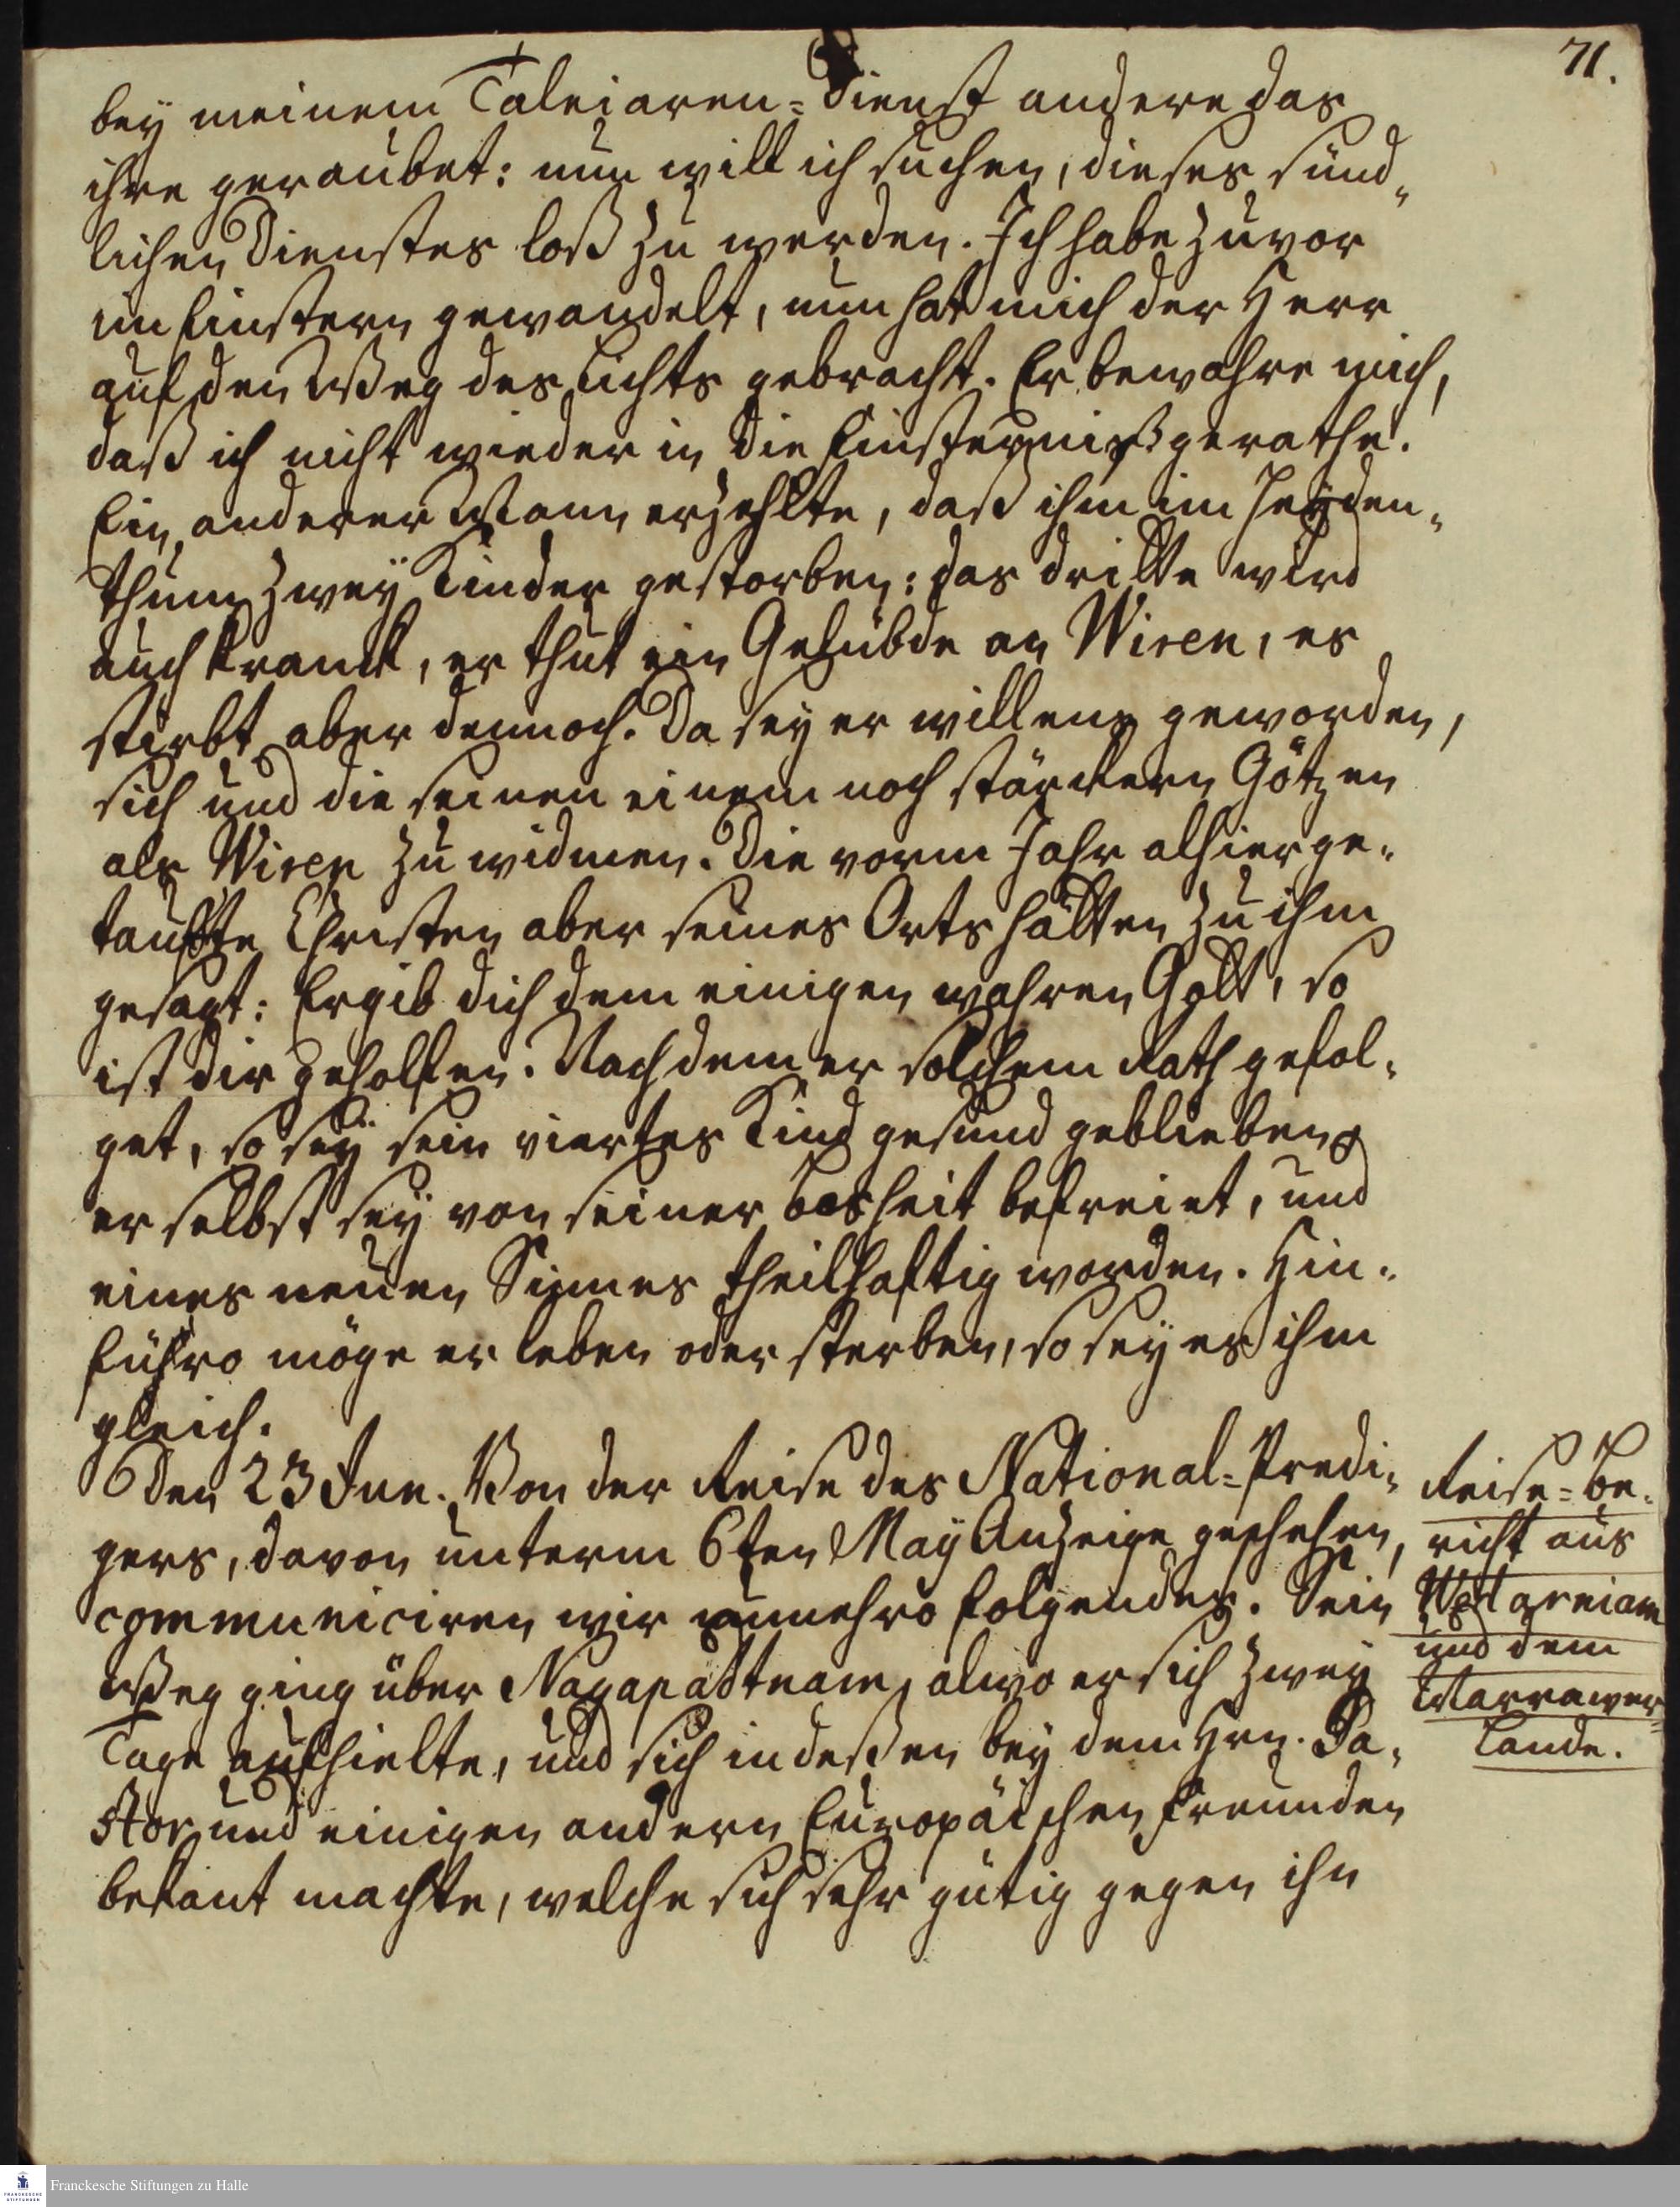 71.
bey meinem Taleiaren-Dienst andere das
ihre geraubet: nun will ich suchen, dieses sünd-
lichen Dienstes loß zu werden. Ich habe zuvor
im finstern gewandelt, nun hat mich der Herr
auf den Weg des Lichts gebracht. Er bewahre mich,
daß ich nicht wieder in die Finsterniß gerathe.
Ein anderer Mann erzehlte, daß ihm im Heyden-
thum zwey Kinder gestorben: das dritte wird
auch kranck, er thut ein Gelübde an Wiren, es
stirbt aber dennoch. Da sey er willens geworden,
sich und die seinen einem noch stärckern Götzen
als Wiren zu widmen. Die vorm Jahr alhier ge-
tauffte Christen aber seines Orts hätten zu ihm
gesagt: Ergib dich dem einigen wahren Gott, so
ist dir geholfen. Nachdem er solchem Rath gefol-
get, so sey sein viertes Kind gesund geblieben,
er selbst sey von seiner Bosheit befreiet, und
eines neuen Sinnes theilhaftig worden. Hin-
führo möge er leben oder sterben, so sey es ihm
gleich.
Den 23 Jun. Von der Reise des National-Predi-
gers, davon unterm 6ten May Anzeige geschehen,
communiciren wir nunmehro folgendes. Sein
Weg ging über Nagapattnam, alwo er sich zwey
Tage aufhielte, und sich indeßen bey dem Hrn. Pa-
stor und einigen andern Europäischen Freunden
bekant machte, welche sich sehr gütig gegen ihn
Reise-Be-
richt aus
Wedarniam
und dem
Marrawer-
Lande.
Franckesche Stiftungen zu Halle